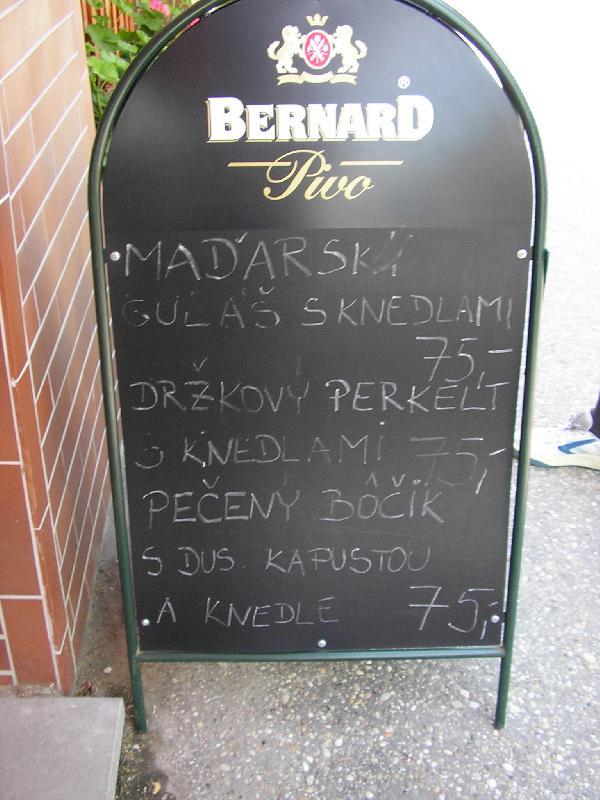 BERNARD ®
Pivo
MAĎARSKÝ
GULÁŠ S KNEDLAMI
75,-
DRŽKOVÝ PERKELT
S KNEDLAMI 75,-
PEČENÝ BÔČIK
S DUS. KAPUSTOU
A KNEDLE 75,-